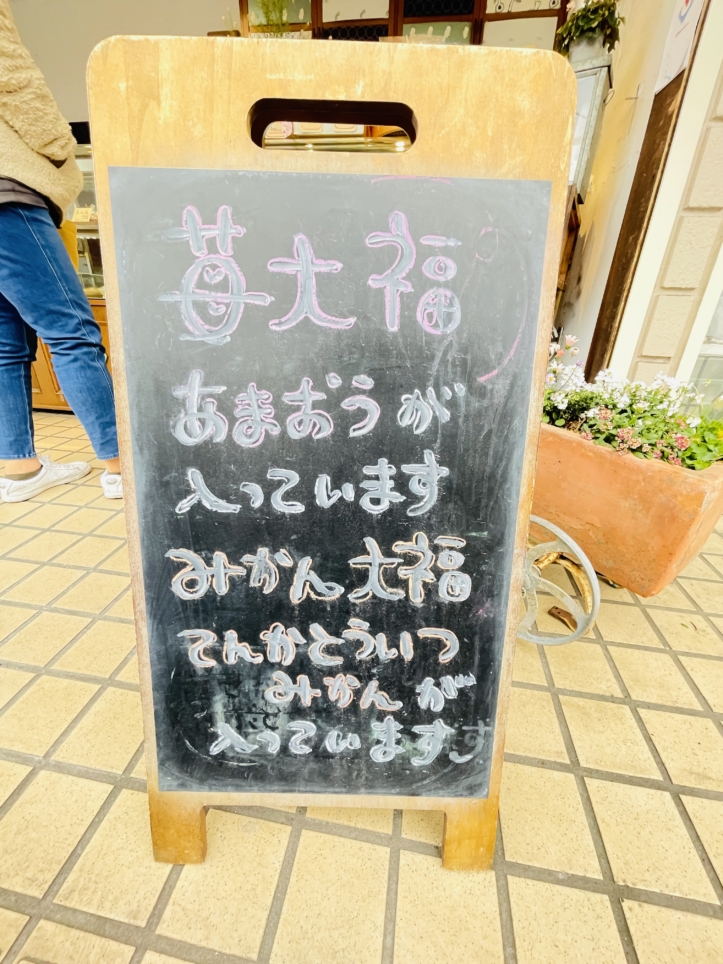 苺大福
あまおうが
入っています
みかん大福
てんかとういつ
みかんが
入っています